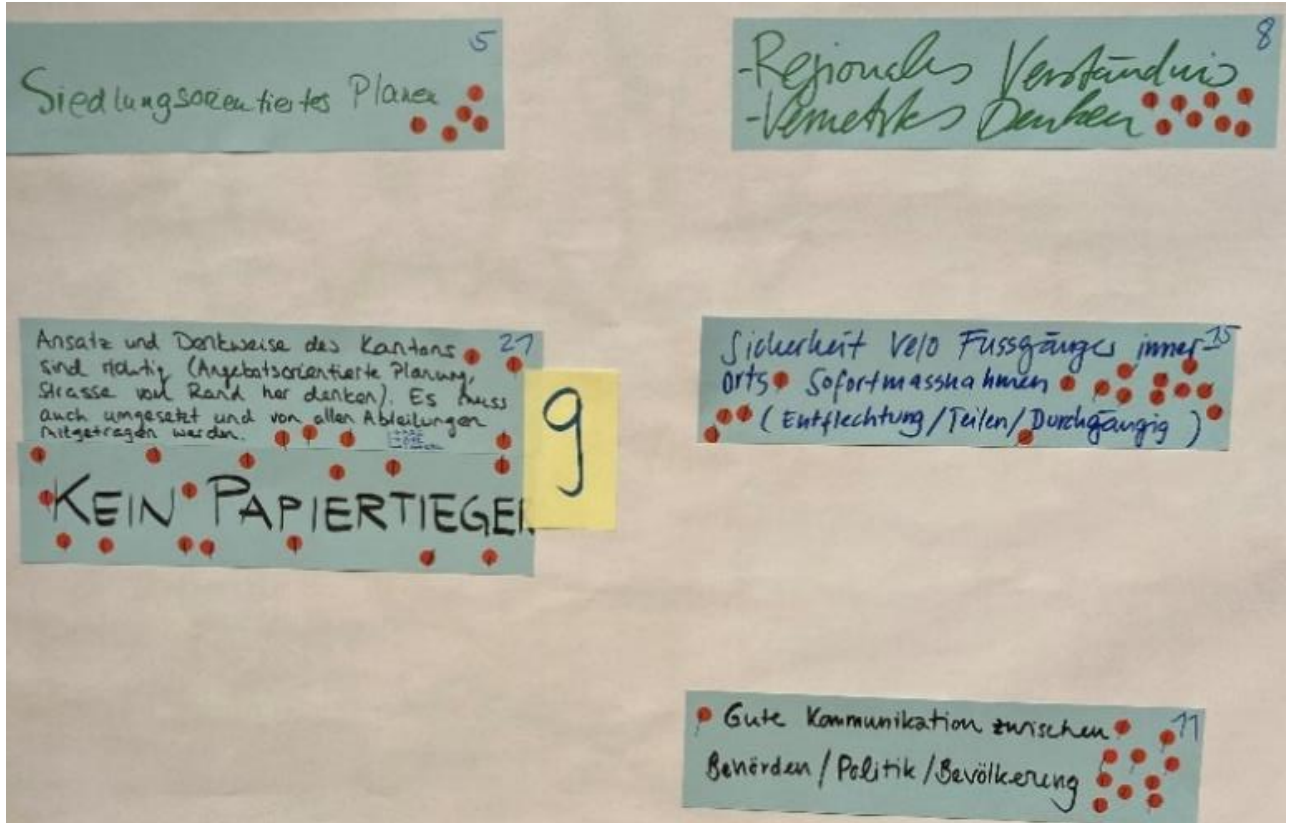 5
Siedlungsorientiertes Planen
8
-Regionales Verständnis
-Vernetztes Denken
Ansatz und Denkweise des Kantons 21
sind richtig (Angebotsorientierte Planung,
Strasse vom Rand her denken). Es muss
auch umgesetzt und von allen Abteilungen
mitgetragen werden.
KEIN PAPIERTIEGER
9
Sicherheit Velo Fussgänger inner- 15
orts Sofortmassnahmen
(Entflechtung/Teilen/Durchgängig)
Gute Kommunikation zwischen 11
Behörden/Politik/Bevölkerung